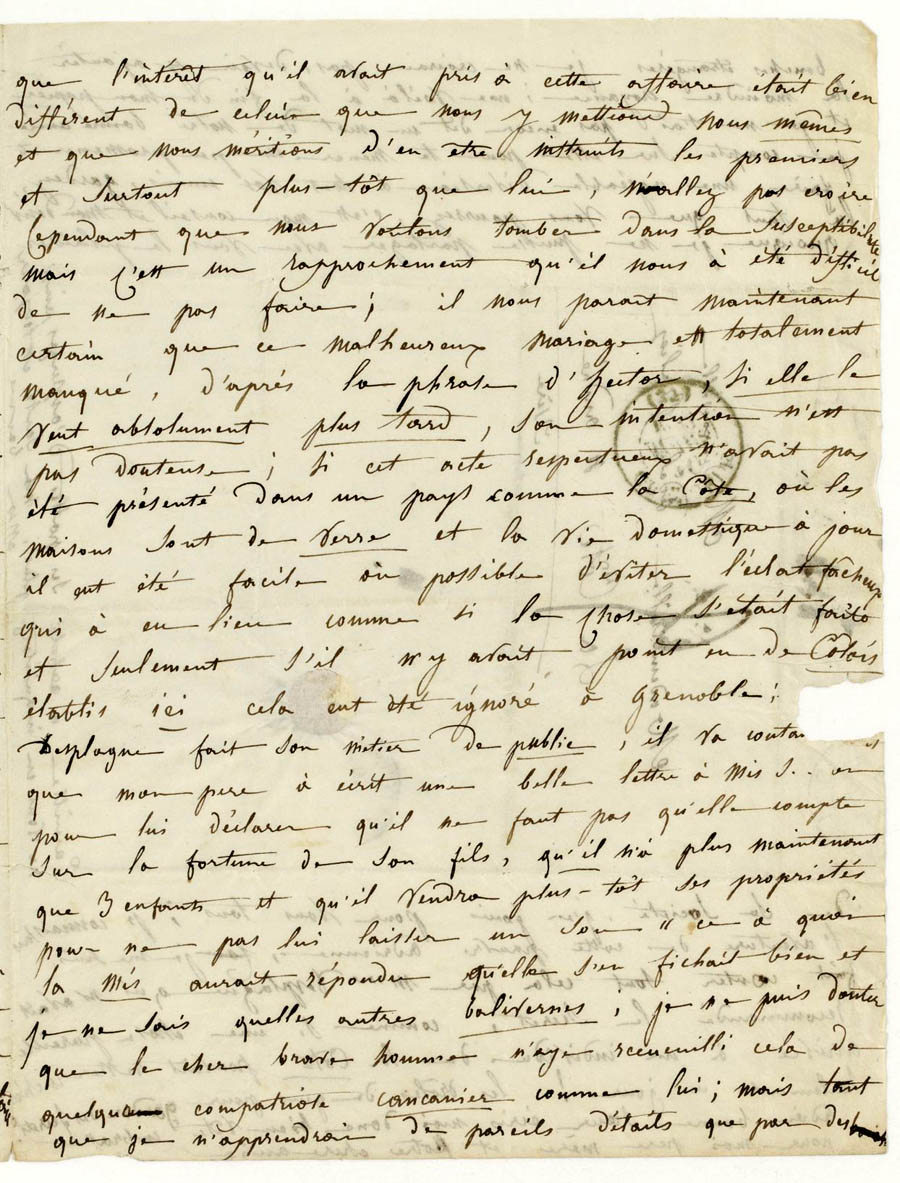 que l'intéret qu'il avait pris à cette affaire était bien
différent de celui que nous y mettions nous mêmes
et que nous méritions d'en etre instruits les premiers
et surtout plus-tôt que lui, n'allez pas croire
Cependant que nous voulons tomber dans la susceptibilité
mais c'est un rapprochement qu'il nous à été difficil
de ne pas faire; il nous parait maintenant
certain que ce malheureux mariage est totalement
manqué, d'après la phrase d'hector, si elle le
veut absolument plus tard, son intention n'est
pas douteuse; si cet acte respectueux n'avait pas
été présenté dans un pays comme la Côte, où les
maisons sont de verre et la vie domestique à jour
il eut été facile ou possible d'éviter l'éclat facheux
qui à eu lieu comme si la chose s'était faite
et seulement s'il n'y avait point eu de Colois
établis ici cela eut été ignoré à Grenoble;
Desplagne fait son métier de public, il va
que mon pere à écrit une belle lettre à Mis S..on
pour lui déclarer qu'il ne faut pas qu'elle compte
sur la fortune de son fils, qu'il n'a plus maintenant
que 3 enfants et qu'il vendra plus-tôt ses propriétés
pour ne pas lui laisser un sou " ce à quoi
la Mis aurait répondu qu'elle s'en fichait bien et
je ne sais quelles autres balivernes; je ne puis douter
que le cher brave homme n'aye receueilli cela de
quelque compatriote cancanier comme lui; mais tant
que je n'apprendrai de pareils détails que par des